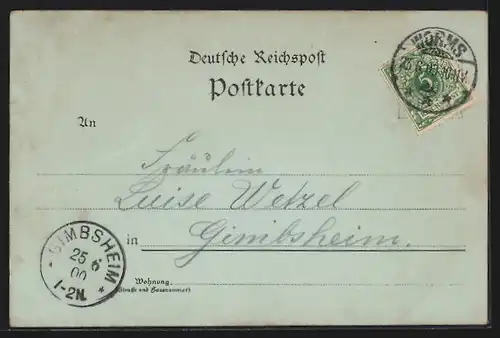 Deutsche Reichspost
Postkarte
WORMS
5
An
Fräulein
Luise Wetzel
in Gimbsheim.
GIMBSHEIM
25 6
00
1-2N.
Wohnung.
(Straße und Hausnummer)